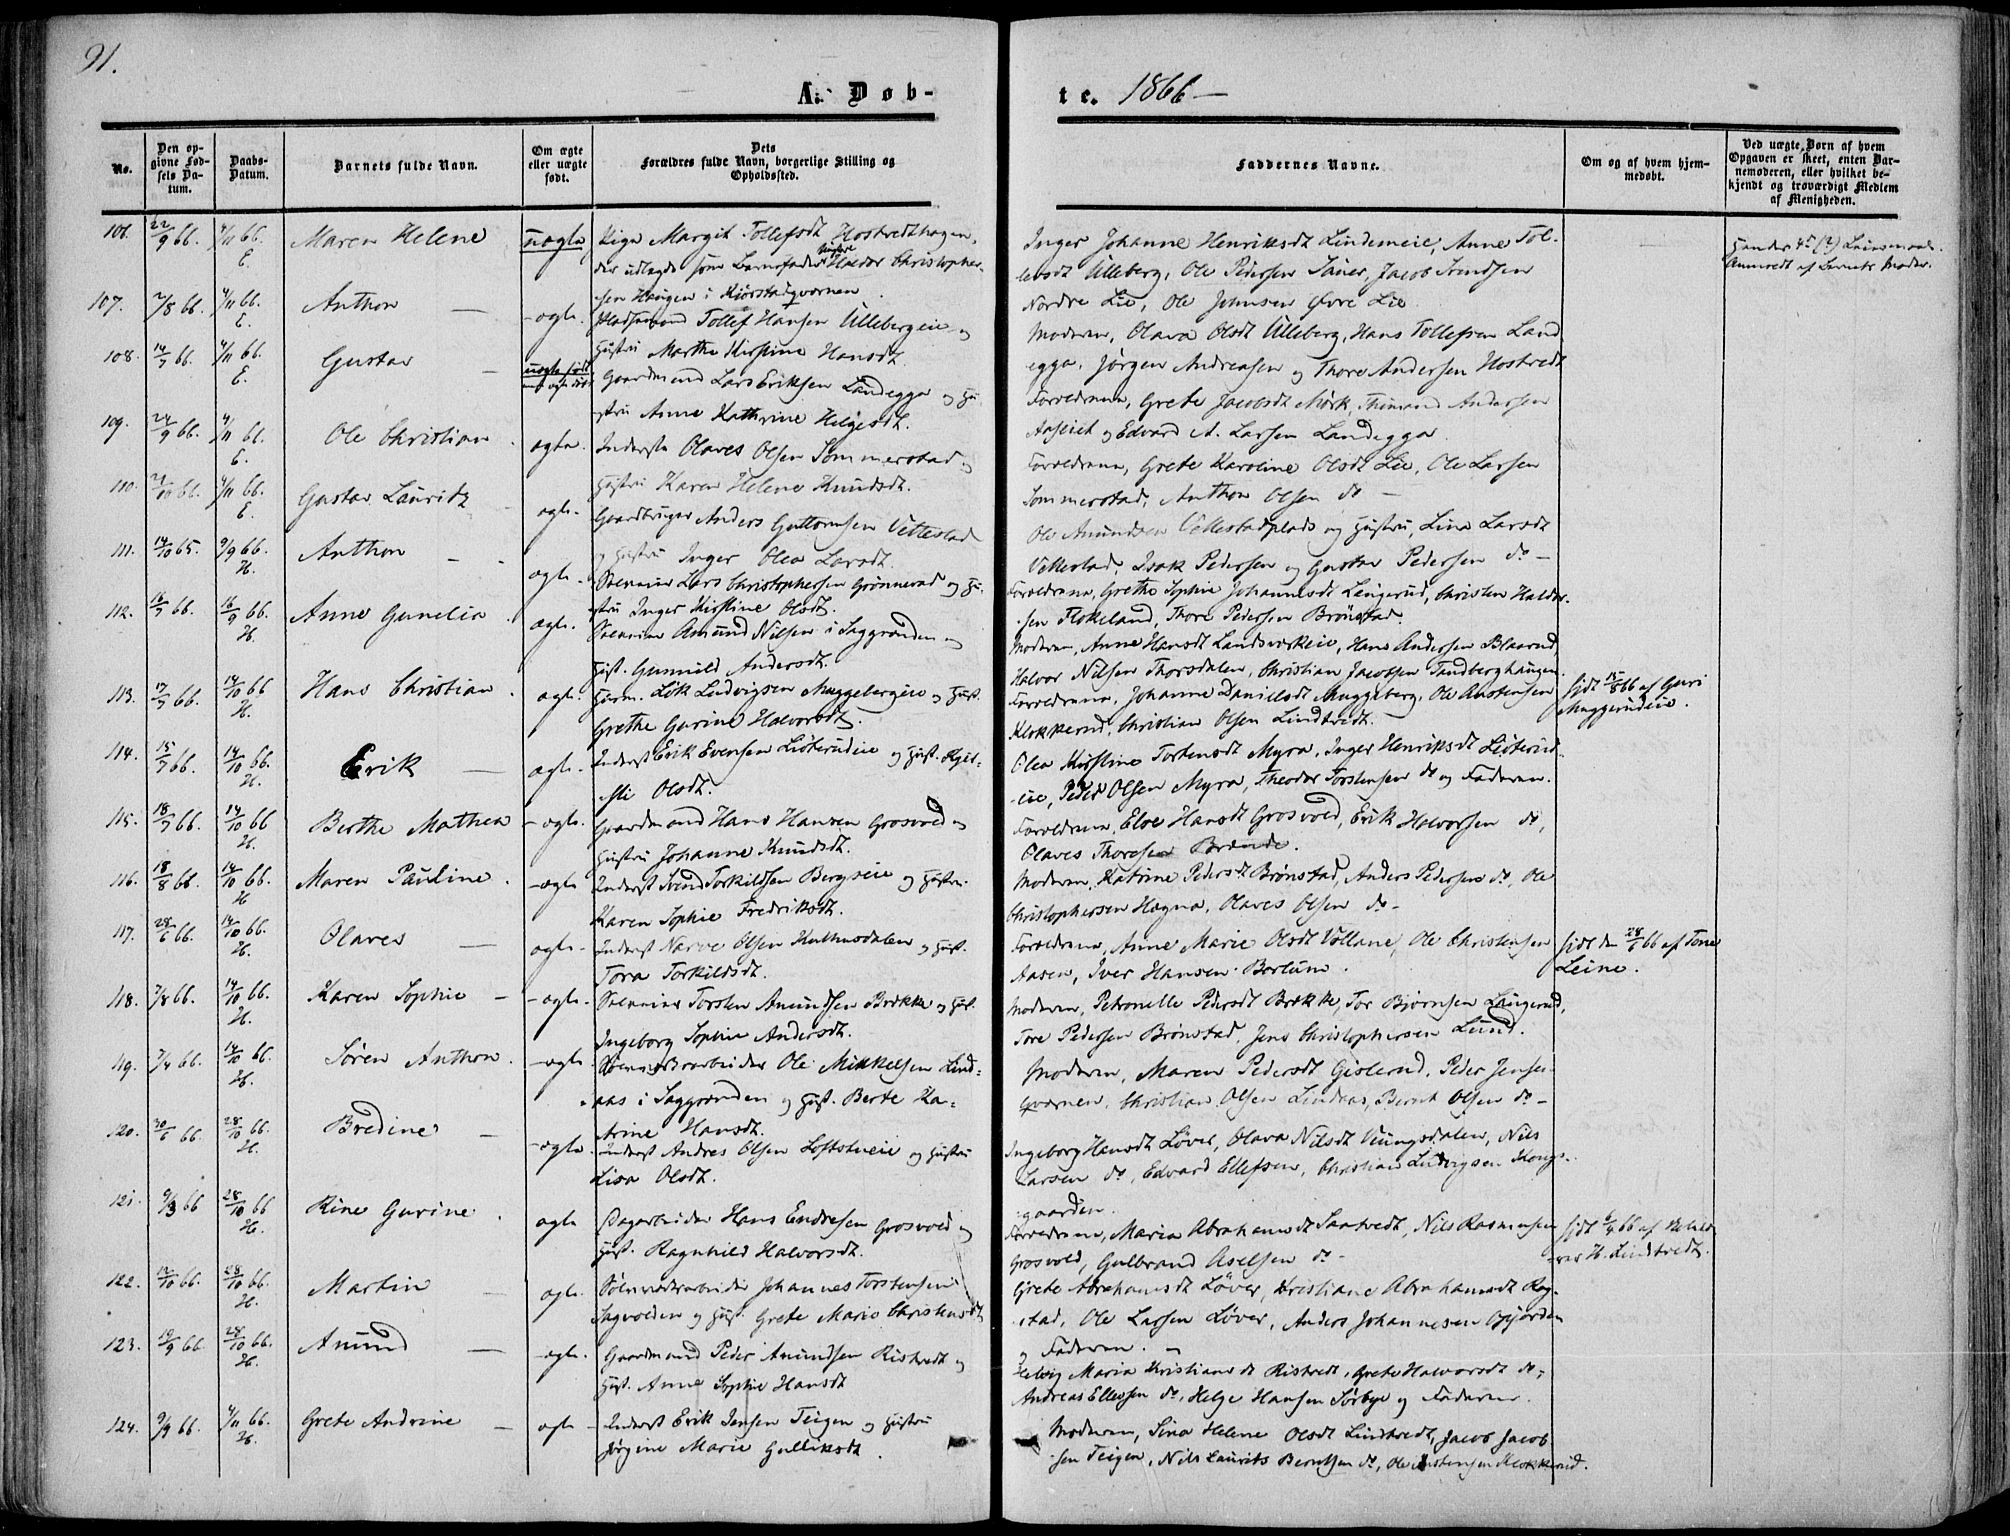 91.
A. Døb-
te. 1866 —
No.
Den opgivne Fødsels Datum.
Daabs-Datum.
Barnets fulde Navn.
Om ægte eller uægte født.
Dets Forældres fulde Navn, borgerlige Stilling og Opholdssted.
Faddernes Navne.
Om og af hvem hjemmedøbt.
Ved uægte Børn af hvem Opgaven er skeet, enten Barnemoderen, eller hvilket bekjendt og troværdigt Medlem af Menigheden.
106. 22/9 66. 4/11 66. E. Maren Helene uægte Pige Margit Tollefsdt Hostvedthagen,
der udlagde som Barnefader Halvor Christopher-
sen Haugen i Kjørstadqværnen
107. 2/8 66. 4/11 66. E. Anthon — ægte. Pladsmand Tollef Hansen Ullebergeie og
Hustru Marthe Kirstine Hansdt.
108. 14/7 66. 4/11 66. E. Gustav — uægte født Gaardmand Lars Eriksen Landegga og Hu-
stru Anne Kathrine Helgesdt.
109. 24/9 66. 4/11 66. E. Ole Christian. ægte. Inderste Olaves Olsen Sommerstad og
Hustru Karen Helene Knudsdt.
110. 21/10 66. 4/11 66. E. Gustav Lauritz ægte. Gaardbruger Anders Guttormsen Vettestad
og Hustru Inger Olea Larsdt.
111. 14/10 65. 9/9 66. H. Anthon — ægte. Lars Christophersen Grønnerud og Hu-
stru Inger Kirstine Olsdt.
112. 16/7 66. 16/9 66. H. Anne Gunelia. ægte. Amund Nilsen i Saggrænden og
Hust. Gunnild Andersdt.
113. 17/7 66. 14/10 66 H. Hans Christian. ægte. Ludvigsen Muggebergeie og Hust.
Grethe Gurine Halvorsdt.
114. 15/7 66. 14/10 66. H. Erik — ægte. Inderst Erik Evensen Listerudeie og Hust. Kjer-
sti Olsdt.
115. 18/7 66. 14/10 66 H. Berthe Mathea — ægte. Gaardmand Hans Hansen Grosvold og
Hustru Johanne Knudsdt.
116. 18/8 66. 14/10 66. H. Maren Pauline. — ægte Inderst Svend Torkildsen Bergseie og Hustru
Karen Sophie Fredriksdt.
117. 28/6 66. 14/10 66. H. Olaves — ægte. Inderst Narve Olsen og Hust.
Tora Torkildsdt.
118. 7/8 66. 14/10 66. H. Karen Sophie — ægte. Torsten Amundsen Brække og Hust.
Ingeborg Sophie Andersdt.
119. 7/4 66. 14/10 66. H. Søren Anthon. — ægte. Ole Mikkelsen Lind-
aas i Saggrænden og Hust. Berte Ka-
trine Hansdt.
120. 30/6 66. 28/10 66. H. Bredine — ægte Inderst Andres Olsen Loftstueie og Hustru
Lisa Olsdt.
121. 9/3 66 28/10 66 H. Rine Gurine. ægte Dagarbeider Hans Endresen Grosvold og
Hust. Ragnhild Halvorsdt.
122. 12/10 66. 28/10 66. H. Martin — ægte. Sølvverksarbeider Johannes Torstensen
Sagvolden og Hust. Grete Marie Christensdt
123. 19/9 66. 28/10 66. H. Amund — ægte. Gaardmand Peder Amundsen Ristvedt og
Hust. Anne Sophie Hansdt
124. 9/9 66. 4/11 66. H. Grete Andrine — ægte Inderst Erik Jensen Teigen og Hustru
Jørgine Marie Gulliksdt.
Inger Johanne Henriksdt Lindemeie, Anne Tol-
lefsdt Ulleberg, Ole Pedersen Saner, Jacob
Nordre Lie, Ole Johnsen Øvre Lie
Moderen, Olava Olsdt Ulleberg, Hans Tollefsen Land
egga, Jørgen Andreasen og Thore Andersen Hostvedt
Forældrene, Grete Jacobsdt Mørk, Andersen
og Edvard A. Larsen Landegga.
Forældrene, Grete Karoline Olsdt Lie, Ole Larsen
Sommerstad, Anthon Olsen do —
Ole Amundsen Vettestadplads og Hustru, Lina Larsdt
Vettestad, Isak Pedersen og Gustav Pedersen do —
Forældrene, Grethe Sophie Johannesdt Lengerud, Christen Haldor-
sen Flokeland, Thore Pedersen Brønstad.
Moderen, Anne Hansdt Landsverkeie, Hans Andersen Blaarud,
Halvor Nilsen Thorsdalen, Christian Jacobsen Tundberghaugen.
Forældrene, Johanne Danielsdt Muggeberg, Ole Austensen
Klokkerud, Christian Olsen Lindtvedt.
Olea Kirstine Torstensdt Myra, Inger Henriksdt Listerud-
eie, Peder Olsen Myra, Theodor Torstensen do og Faderen.
Forældrene, Eloe Hansdt Grosvold, Erik Halvorsen do,
Olaves Thoresen Brænde.
Moderen, Katrine Pedersdt Brønstad, Anders Pedersen do, Ole
Christophersen Hægna, Olaves Olsen do —
Forældrene, Anne Marie Olsdt Vollane, Ole Christensen
Aasen, Iver Hansen Borlum.
Moderen, Petronelle Pedersdt Brække, Tor Bjørnsen Lengerud,
Tore Pedersen Brønstad, Jens Christophersen Lund.
Moderen, Maren Pedersdt Gislerud, Peder Jensen
Qværnen, Christian Olsen Lindaas, Bernt Olsen do —
Ingeborg Hansdt Løver, Olava Nilsdt Viungsdalen, Nils
Larsen do, Edvard Ellefsen, Christian Ludvigsen Kongs-
gaarden.
Forældrene, Maria Abrahamsdt Saatvedt, Nils Rasmusen
Grosvold, Gulbrand Axelsen do —
Grete Abrahamsdt Løver, Kristiane Abrahamsdt Rag-
stad, Ole Larsen Løver, Anders Johannesen Opjorden
og Faderen.
Helvig Maria Kristiansdt Ristvedt, Grete Halvorsdt do,
Andreas Ellefsen do, Helge Hansen Sørbye og Faderen.
Moderen, Sina Helene Olsdt Lindtvedt, Jacob Jacob-
sen Teigen, Nils Laurits Berntsen do, Ole Austensen Klokkerud.
hjdt 18/8 66 af Guri
Muggerudeie.
hjdt den 28/6 66 af Tone
Leine.
hjdt 6/4 66 af
H. Lindtvedt.
hendes 4de (?) Leiermaal.
Anmeldt af Barnets Moder.